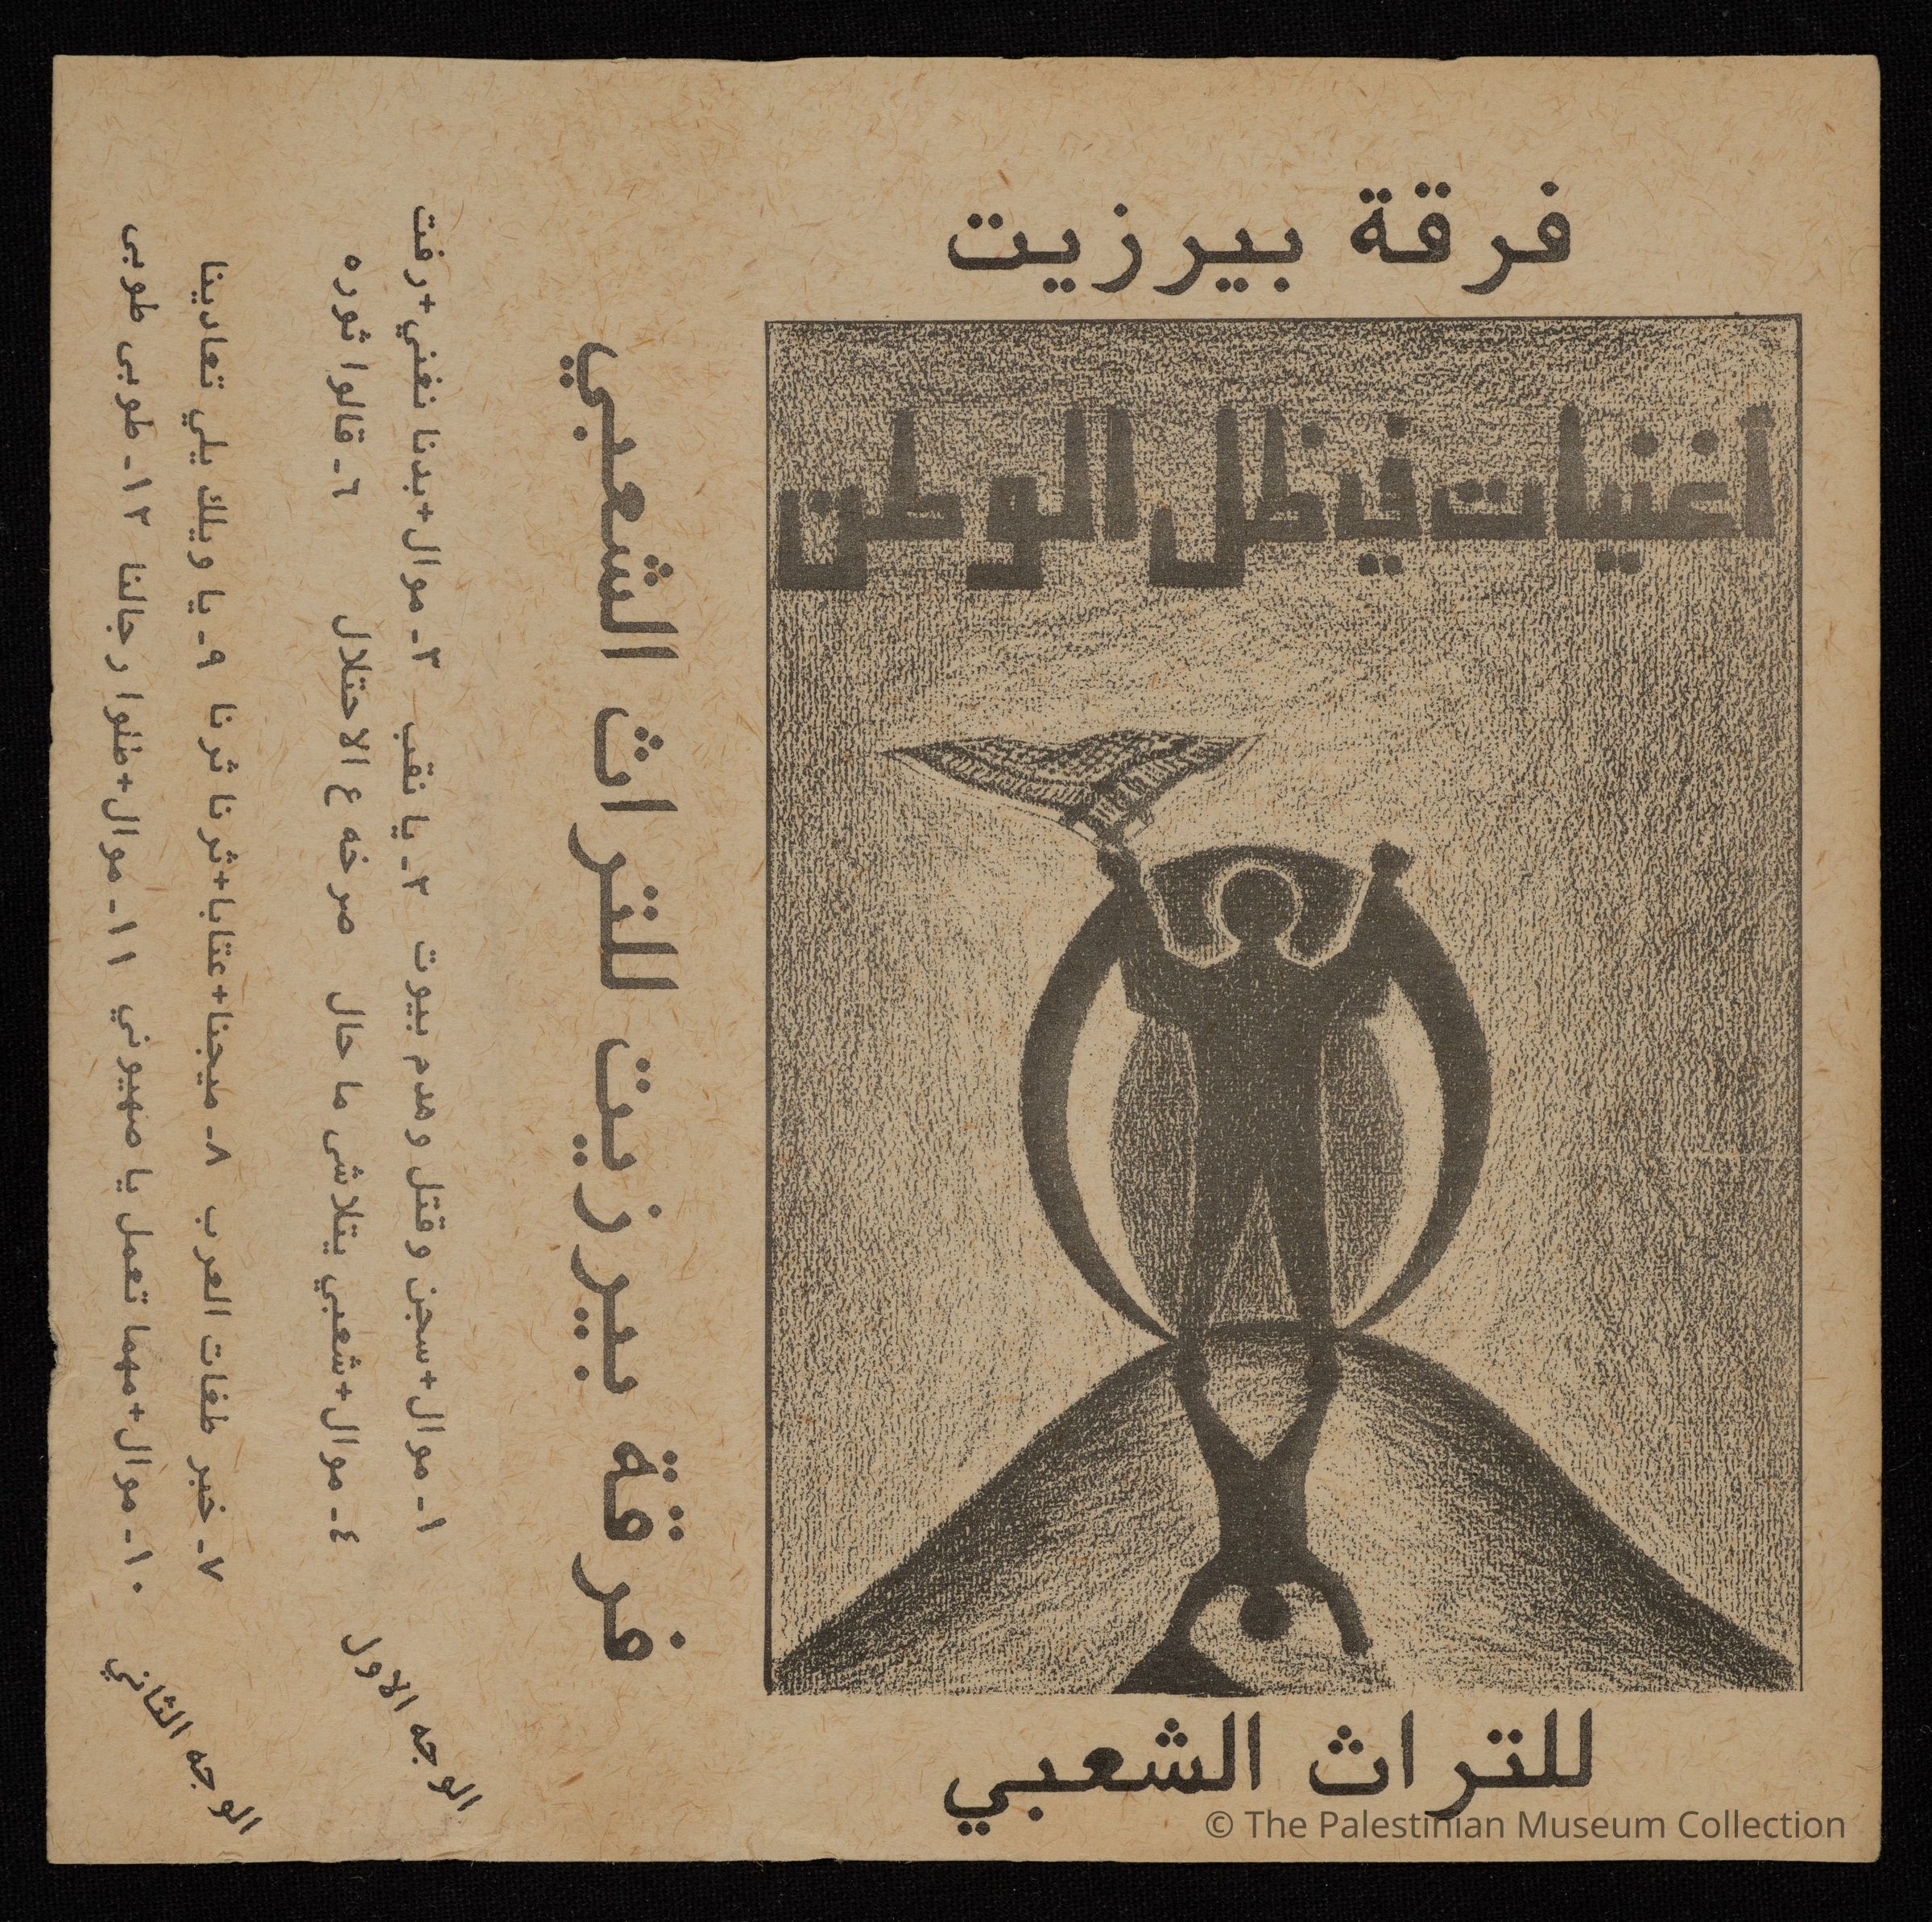 فرقة بيرزيت
أغنيات في ظل الوطن
للتراث الشعبي
فرقة بيرزيت للتراث الشعبي
الوجه الاول
١ـ موال+سجن وقتل وهدم بيوت ٢ـ يا نقب ٣ـ موال+بدنا نغني+رفت
٤ـ موال+شعبي يتلاشى ما حال صرخه ع الاحتلال ٦ـ قالوا ثوره
الوجه الثاني
٧ـ خبر طفات العرب ٨ـ ميجنا+عتابا+ثرنا ثرنا ٩ـ يا ويلك يلي تعادينا
١٠ـ موال+مهما تعمل يا صهيوني ١١ـ موال+طلوا رجالنا ١٢ـ طوبى طوبى
© The Palestinian Museum Collection